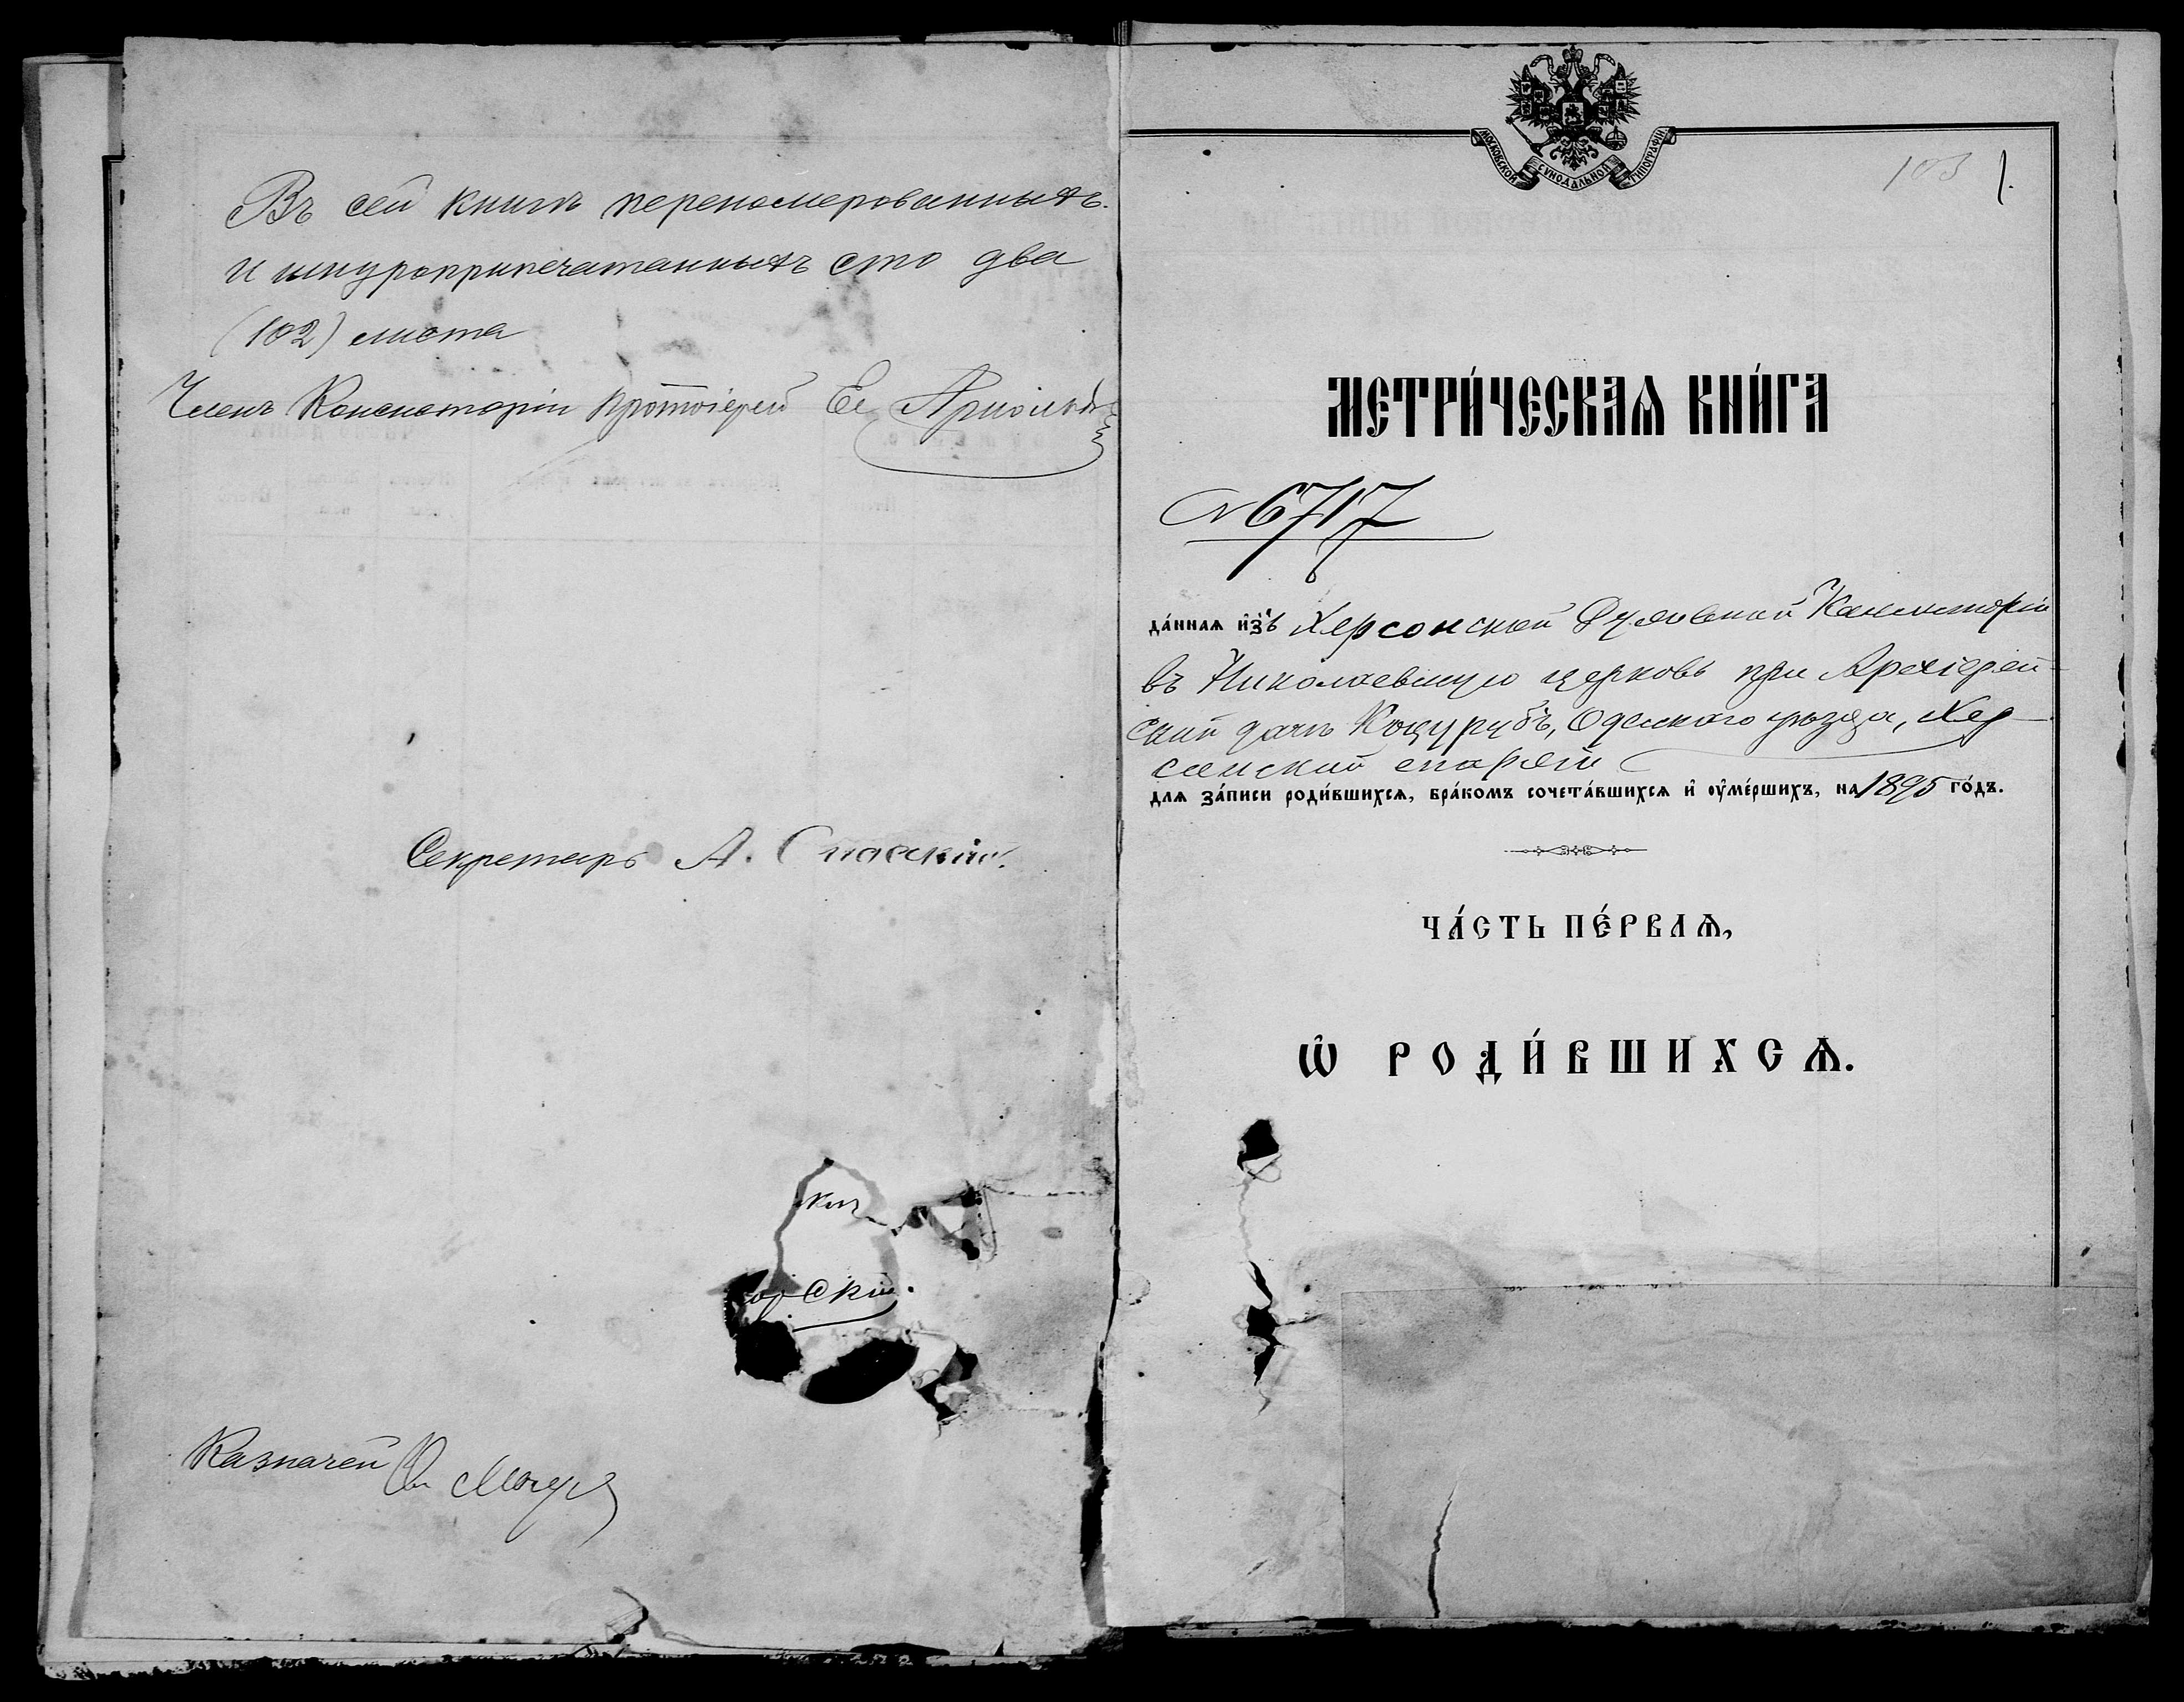 Въ сей книгѣ перепомерованныхъ
и шнуроприпечатанныхъ сто два
(102) листа
Членъ Консисторіи Протоіерей
Секретарь А. Спасскій.
скій.
Казначей
МОСКОВСКОЙ СѴНОДАЛЬНОЙ ТИПОГРАФІИ
103 1.
МЕТРИ́ЧЕСКАѦ КНИ́ГА
№ 6717
да́ннаѧ и҆з̾ Херсонской Духовной Консисторіи
въ Николаевскую церковь при Архіерей-
ской дачѣ Коцурубъ, Одесскаго уѣзда, Хер-
сонской епархіи
длѧ за́писи роди́вшихсѧ, бра́комъ сочета́вшихсѧ и҆ оу҆ме́ршихъ, на 1895 го́дъ.
ЧА́СТЬ ПЕ́РВАѦ,
Ѡ҆ РОДИ́ВШИХСѦ.